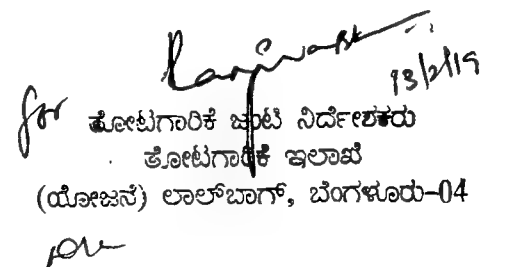 13/2/19
for
ತೋಟಗಾರಿಕೆ ಜಂಟಿ ನಿರ್ದೇಶಕರು
ತೋಟಗಾರಿಕೆ ಇಲಾಖೆ
(ಯೋಜನೆ) ಲಾಲ್‌ಬಾಗ್, ಬೆಂಗಳೂರು-04